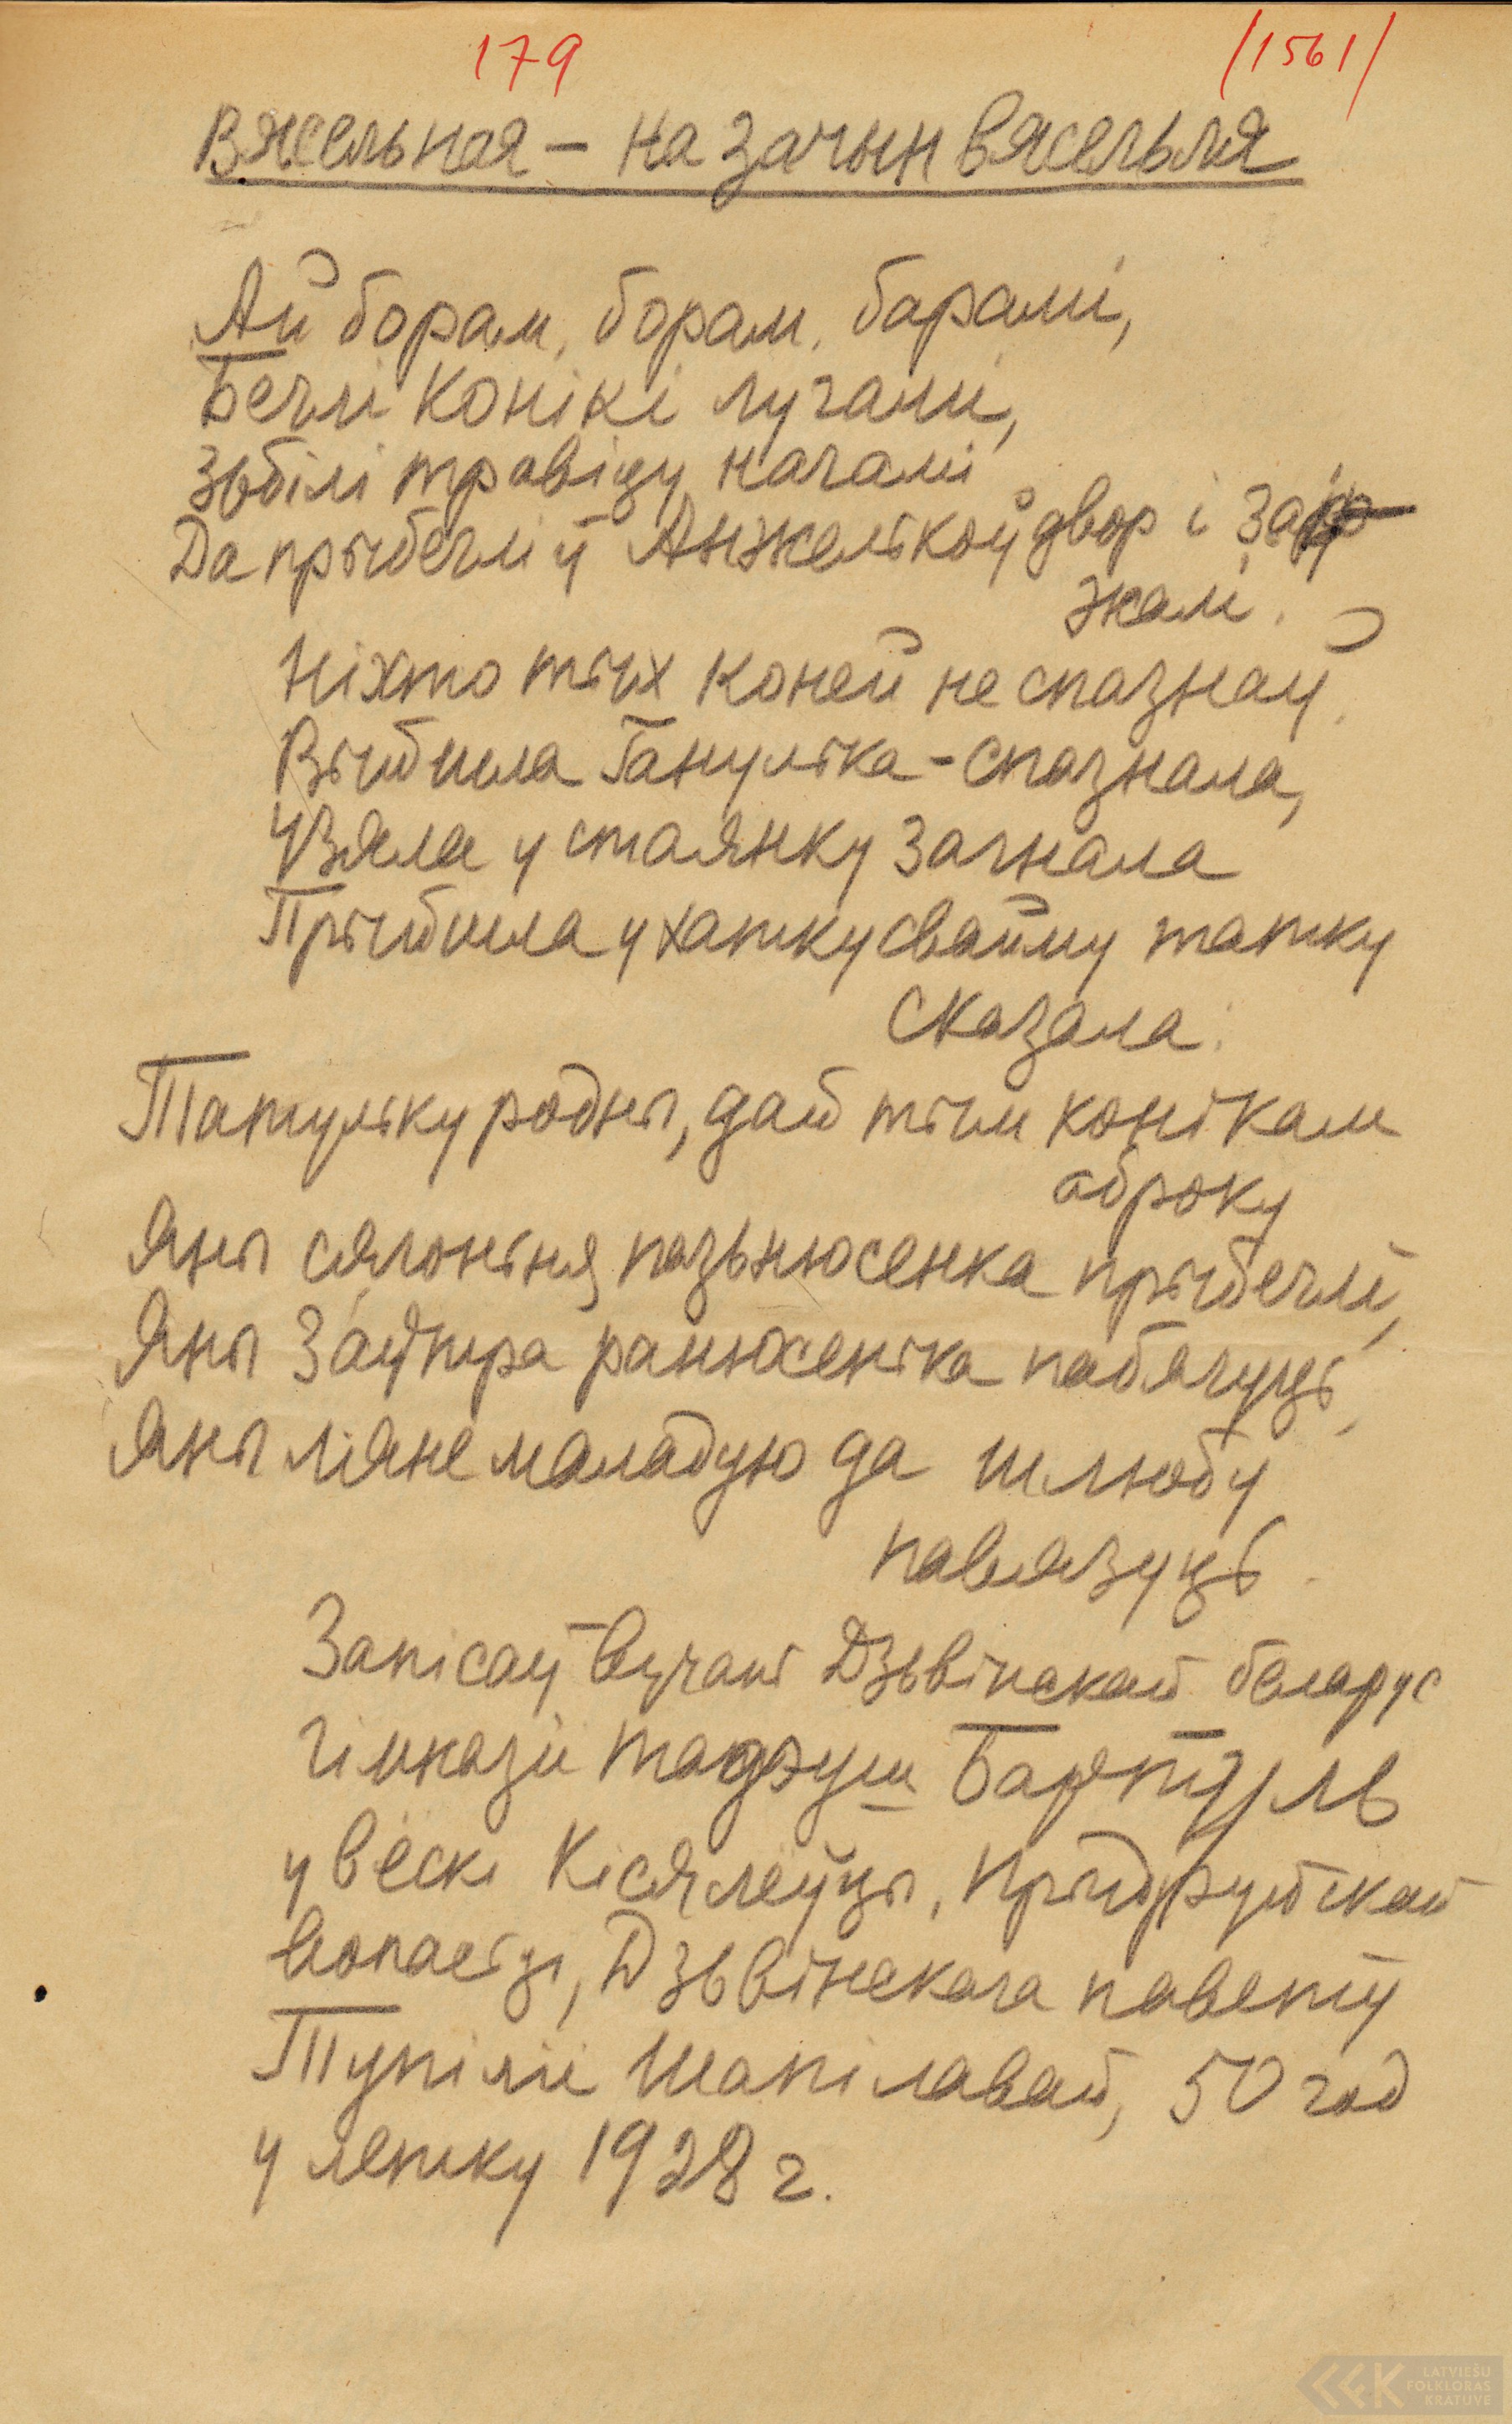 179
/1561/
Вясельная – на зачын вясельля
Ай борам, борам, барамі,
Беглі конікі лугамі,
Зьбілі травіцу нагамі
Да прыбеглі ў Анжелікоў двор і за
жалі.
Ніхто тых коней не спазнаў.
Выйшла Гануліка – спазнала,
Узяла у стаянку загнала
Прыйшла у хатку свайму татку
сказала:
Татуліку родны, дай тым конікам
аброку
Яны сялоньня позьнюсенка прыбеглі,
Яны заўтра ранюсеніка пабягуць,
Яны мяне маладую да шлюбу
павязуць.
Запісаў вучань Дзьвінскай беларус
гімназіі Тадэуш Барткуль
у вёскі Кісялеўцы, Прыдруйскай
воласьці, Дзьвінскага павету
Тупіліі Шапілавай, 50 год
у летку 1928 г.
LATVIEŠU
FOLKLORAS
KRATUVE